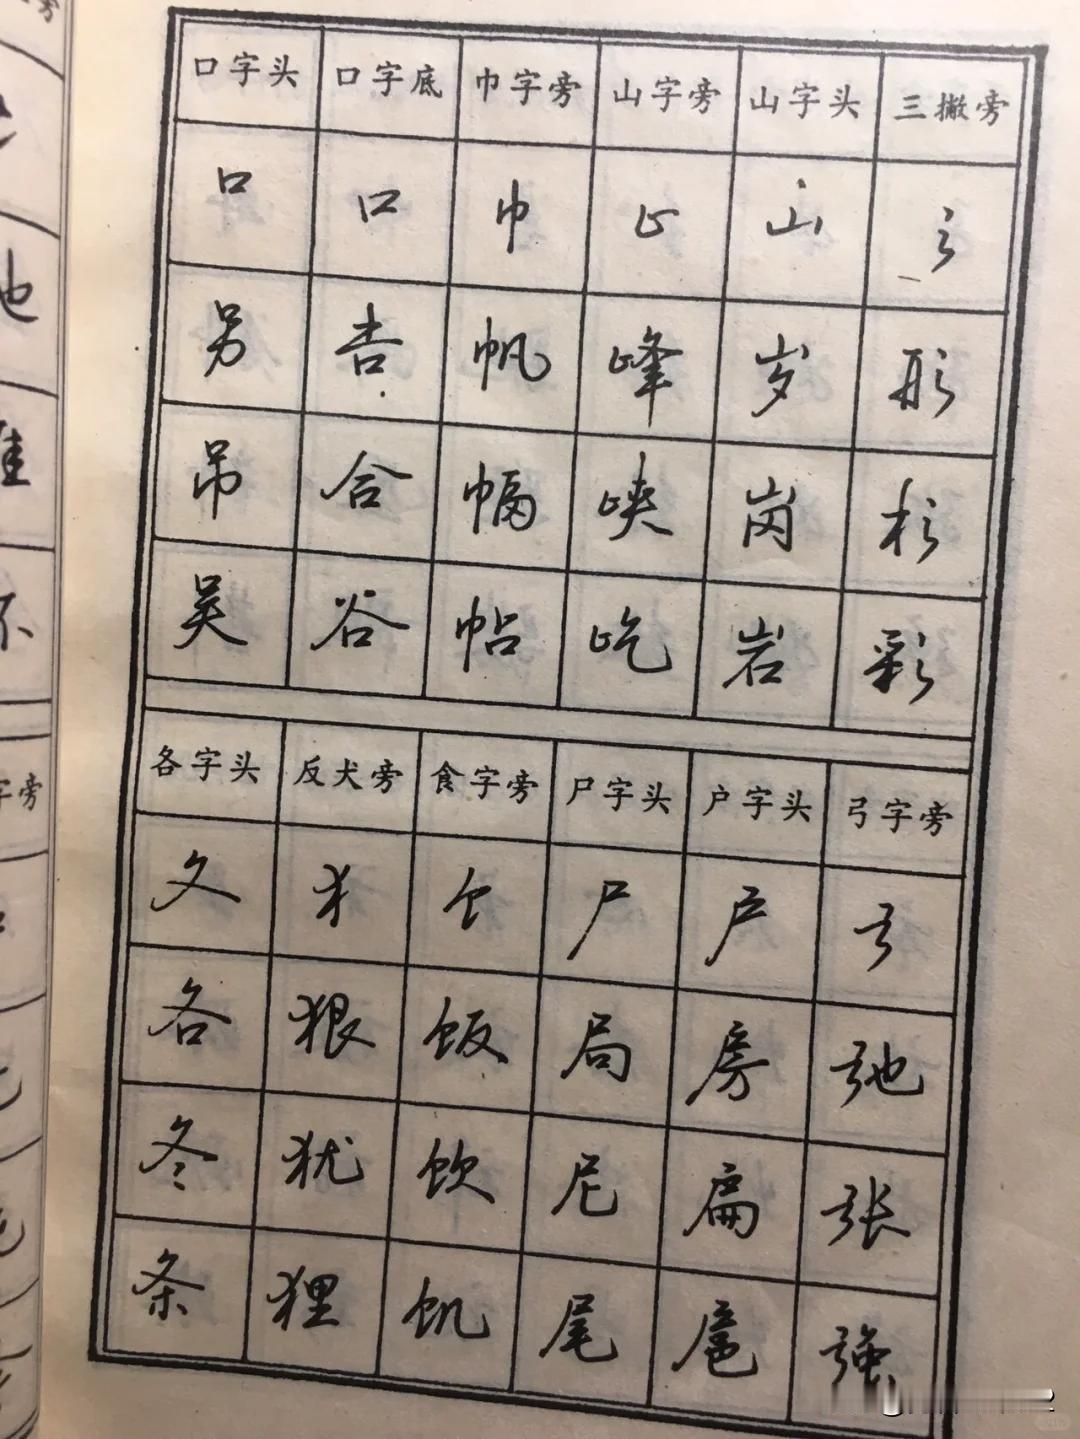 口字头 口字底 巾字旁 山字旁 山字头 三撇旁
口 口 巾 山 山 彡
另 杏 帆 峰 岁 形
吊 合 幅 峡 岗 杉
吴 谷 帖 屹 岩 彩
各字头 反犬旁 食字旁 尸字头 户字头 弓字旁
夂 犭 饣 尸 户 弓
各 狠 饭 局 房 弛
冬 犹 饮 尼 扁 张
条 狸 饥 尾 扈 强